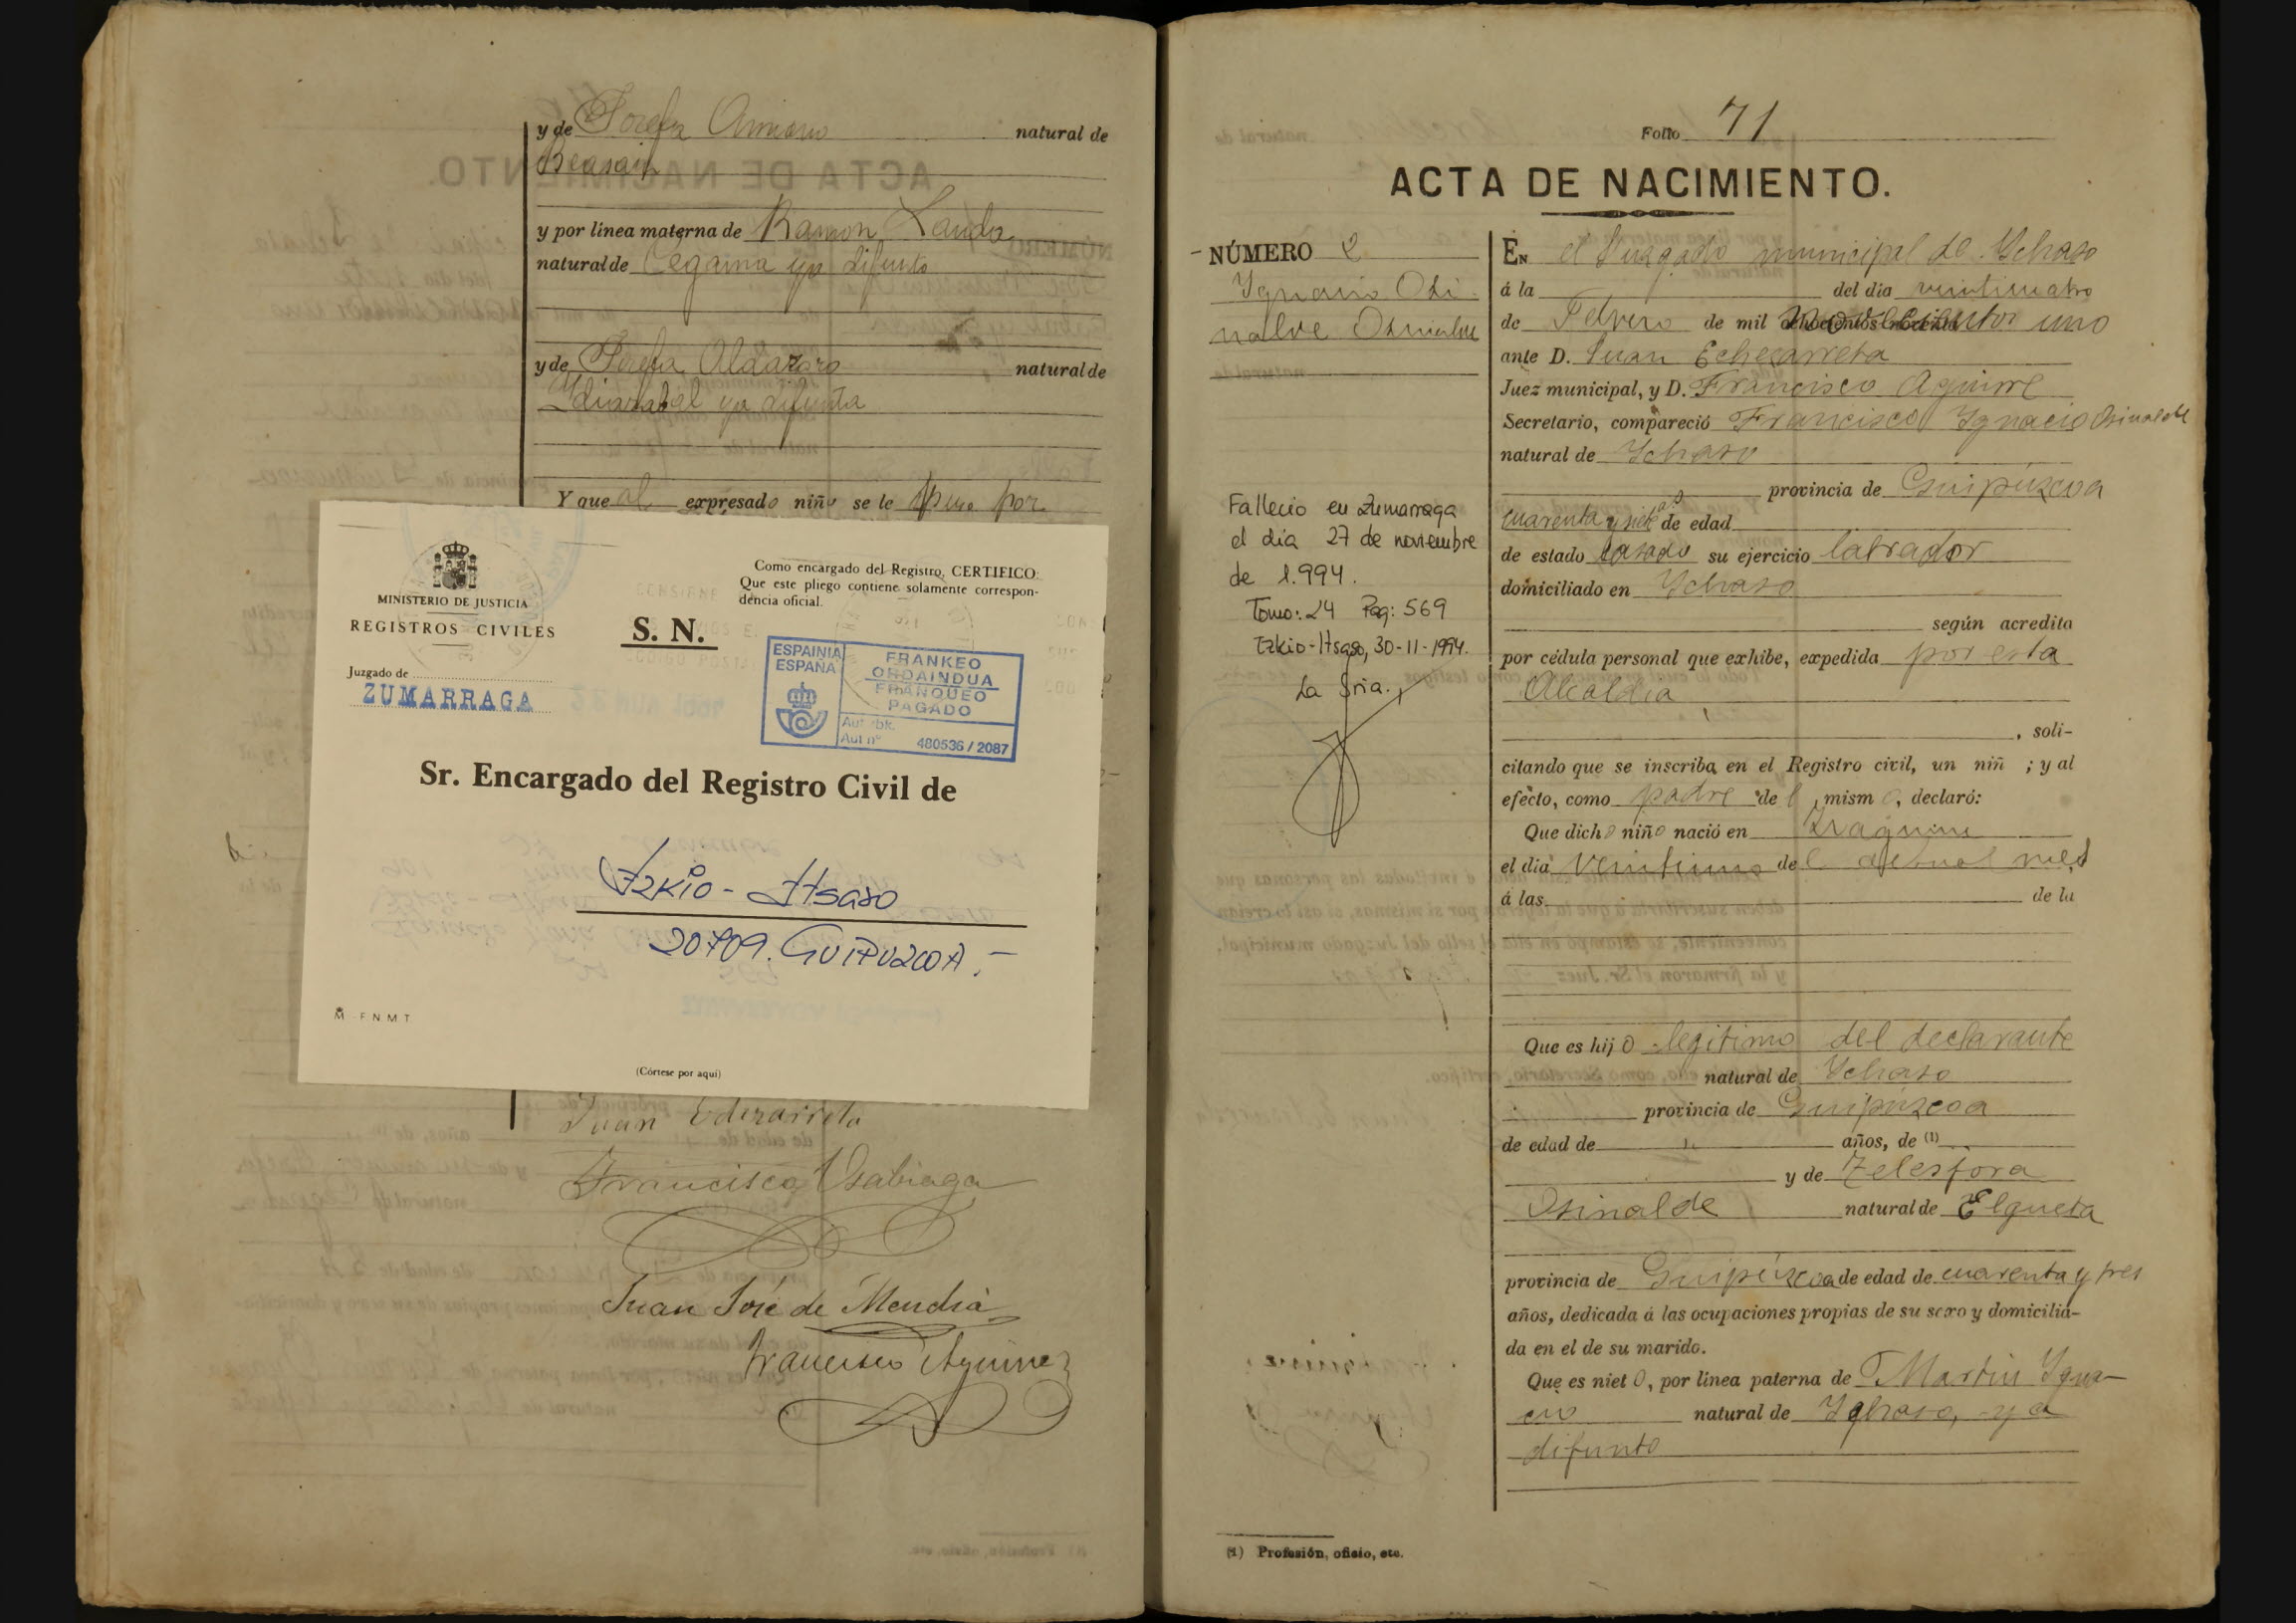 y de Josefa Aimaru natural de
Beasain
y por línea materna de Ramon Landa
natural de Cegama ya difunto
y de Josefa Aldazoro natural de
Ydiazabal ya difunta
Y que al expresado niño se le puso por
MINISTERIO DE JUSTICIA
REGISTROS CIVILES
Juzgado de
ZUMARRAGA
S. N.
Como encargado del Registro, CERTIFICO:
Que este pliego contiene solamente correspon-
dencia oficial.
ESPAINIA
ESPAÑA
FRANKEO
ORDAINDUA
FRANQUEO
PAGADO
Aut. zbk.
Aut nº 480536 / 2087
Sr. Encargado del Registro Civil de
Ezkio - Itsaso
20709. GUIPUZCOA.-
F.N.M.T.
(Córtese por aquí)
Juan Echezarreta
Francisco Usabiaga
Juan José de Mendia
Francisco Aguirre
Folio 71
ACTA DE NACIMIENTO.
NÚMERO 2
Ygnacio Osi-
nalde Osinalde
Fallecio en Zumarraga
el dia 27 de noviembre
de 1.994.
Tomo: 24 Pag: 569
Ezkio-Itsaso, 30-11-1994.
La Sria.,
EN el Juzgado municipal de Ychaso
á la del dia veinticuatro
de Febrero de mil novecientos uno
ante D. Juan Echezarreta
Juez municipal, y D. Francisco Aguirre
Secretario, compareció Francisco Ygnacio Osinalde
natural de Ychaso
provincia de Guipúzcoa
cuarenta y siete as de edad
de estado casado su ejercicio labrador
domiciliado en Ychaso
según acredita
por cédula personal que exhibe, expedida por esta
Alcaldia
, soli-
citando que se inscriba en el Registro civil, un niñ ; y al
efecto, como padre del mismo, declaró:
Que dicho niño nació en
el dia veintiuno del actual mes
á las de la
Que es hijo legitimo del declarante
natural de Ychaso
provincia de Guipúzcoa
de edad de " años, de (1)
y de Telesfora
Osinalde natural de Elgueta
provincia de Guipúzcoa de edad de cuarenta y tres
años, dedicada á las ocupaciones propias de su sexo y domicilia-
da en el de su marido.
Que es nieto, por línea paterna de Martin Ygna-
cio natural de Ychaso, ya
difunto
(1) Profesión, oficio, etc.